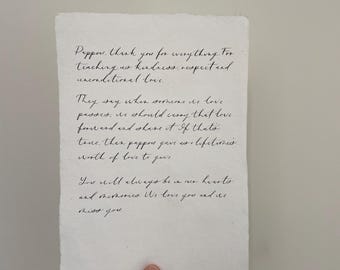 Pappou, thank you for everything. For
teaching us kindness, respect and
unconditional love.
They say when someone we love
passes, we should carry that love
forward and share it. If that's
true, then pappou gave us a lifetimes
worth of love to give.
You will always be in our hearts
and memories. We love you and we
miss you.